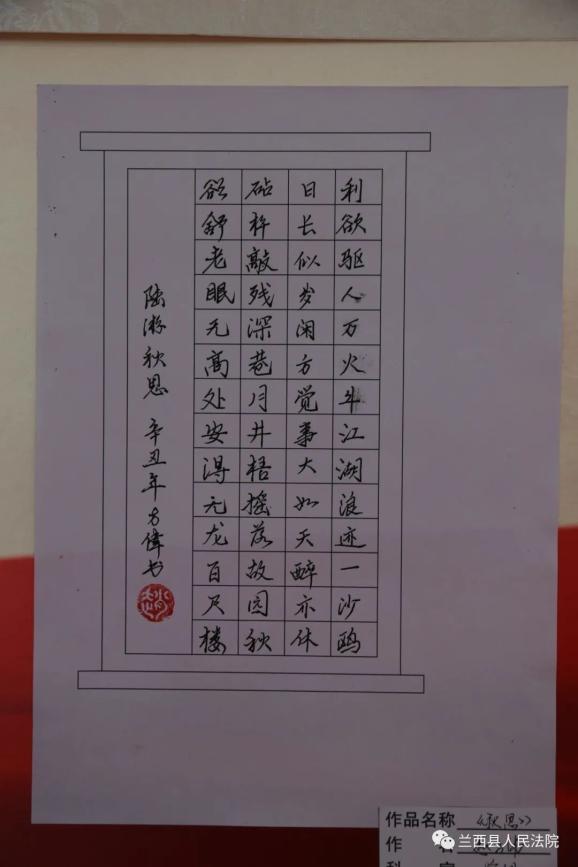 利欲驱人万火牛江湖浪迹一沙鸥
日长似岁闲方觉事大如天醉亦休
砧杵敲残深巷月井梧摇落故园秋
欲舒老眼无高处安得元龙百尺楼
陆游秋思 辛丑年方伟书
作品名称 《秋思》
作 者
兰西县人民法院